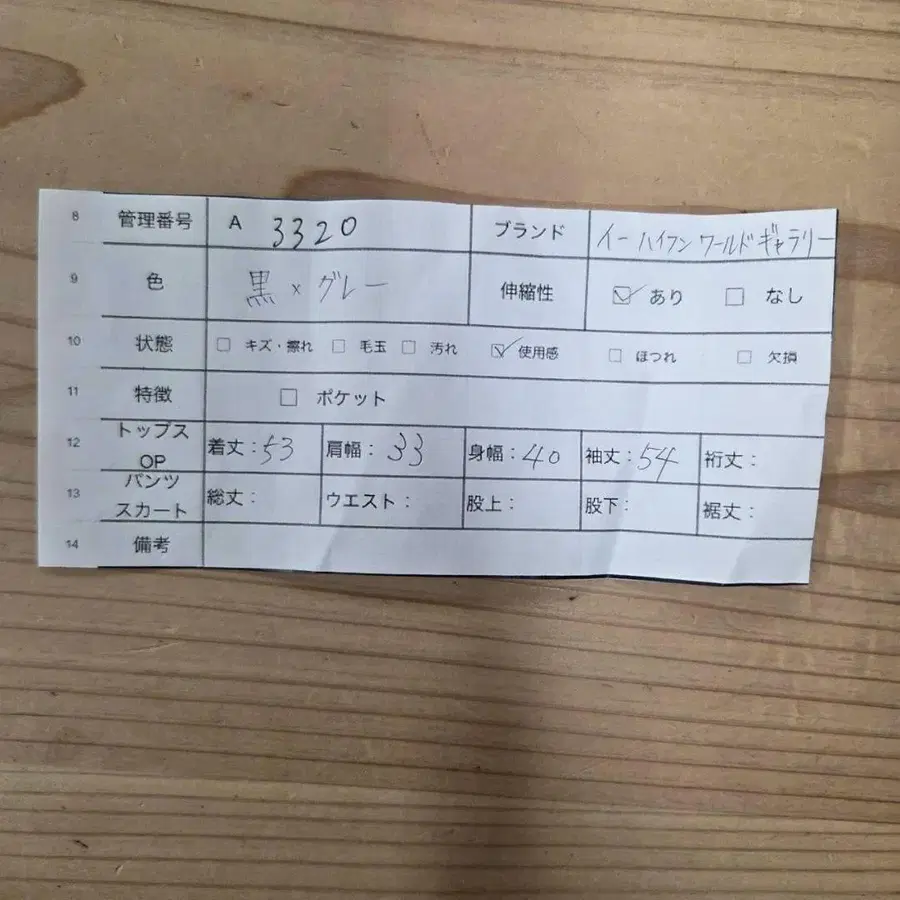 8 管理番号 A 3320 ブランド イーハイフンワールドギャラリー
9 色 黒×グレー 伸縮性 ☑ あり □ なし
10 状態 □ キズ・擦れ □ 毛玉 □ 汚れ ☑ 使用感 □ ほつれ □ 欠損
11 特徴 □ ポケット
12 トップス OP 着丈:53 肩幅:33 身幅:40 袖丈:54 裄丈:
13 パンツ スカート 総丈: ウエスト: 股上: 股下: 裾丈:
14 備考